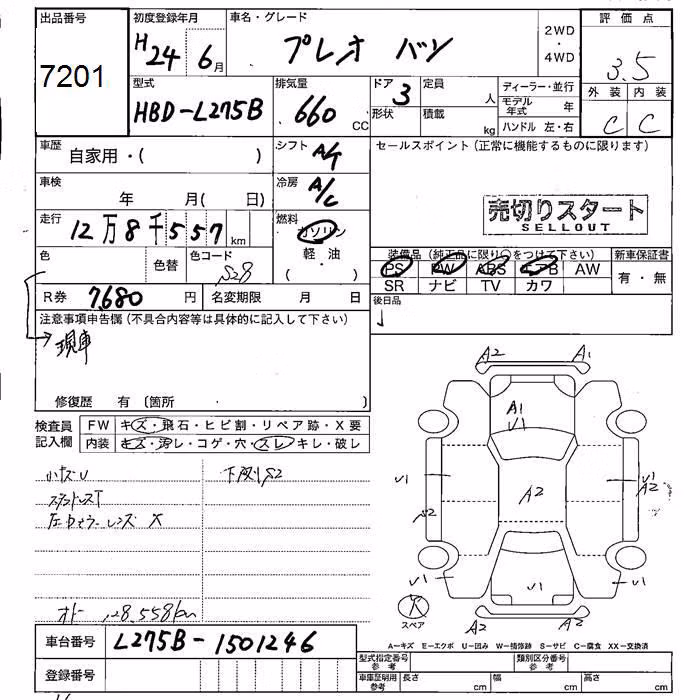 出品番号
7201
初度登録年月
H24 6月
車名・グレード
プレオ バン
2WD
・
4WD
評価点
3.5
型式
HBD-L275B
排気量
660 CC
ドア 3
形状
定員 人
積載 kg
ディーラー・並行
モデル年式 年
ハンドル 左・右
外装 内装
C C
車歴
自家用・( )
シフト A/T
セールスポイント(正常に機能するものに限ります)
車検
年 月( 日)
冷房 A/C
売切りスタート
SELLOUT
走行
12万8千557 km
燃料
ガソリン
軽・油
( )
色
色替
色コード
S28
装備品(純正品に限り○をつけて下さい)
新車保証書
PS PW ABS エアB AW
SR ナビ TV カワ
有・無
R券 7,680 円
名変期限 月 日
後日品
注意事項申告欄(不具合内容等は具体的に記入して下さい)
現車
修復歴 有〔箇所 〕
検査員
記入欄
FW キズ・飛石・ヒビ割・リペア跡・X要
内装 キズ・汚レ・コゲ・穴・スレ・キレ・破レ
小キズU
下廻りS2
オドー 128.558km
A2 A1
A1
U1
A2
U1
S2
U1
A2
U1
U1
U1
スペア
A2 A2
車台番号 L275B-1501246
登録番号
A-キズ E-エクボ U-凹み W-補修跡 S-サビ C-腐食 XX-交換済
型式指定番号
参考
類別区分番号
参考
車庫証明用
参考
長さ cm 幅 cm 高さ cm